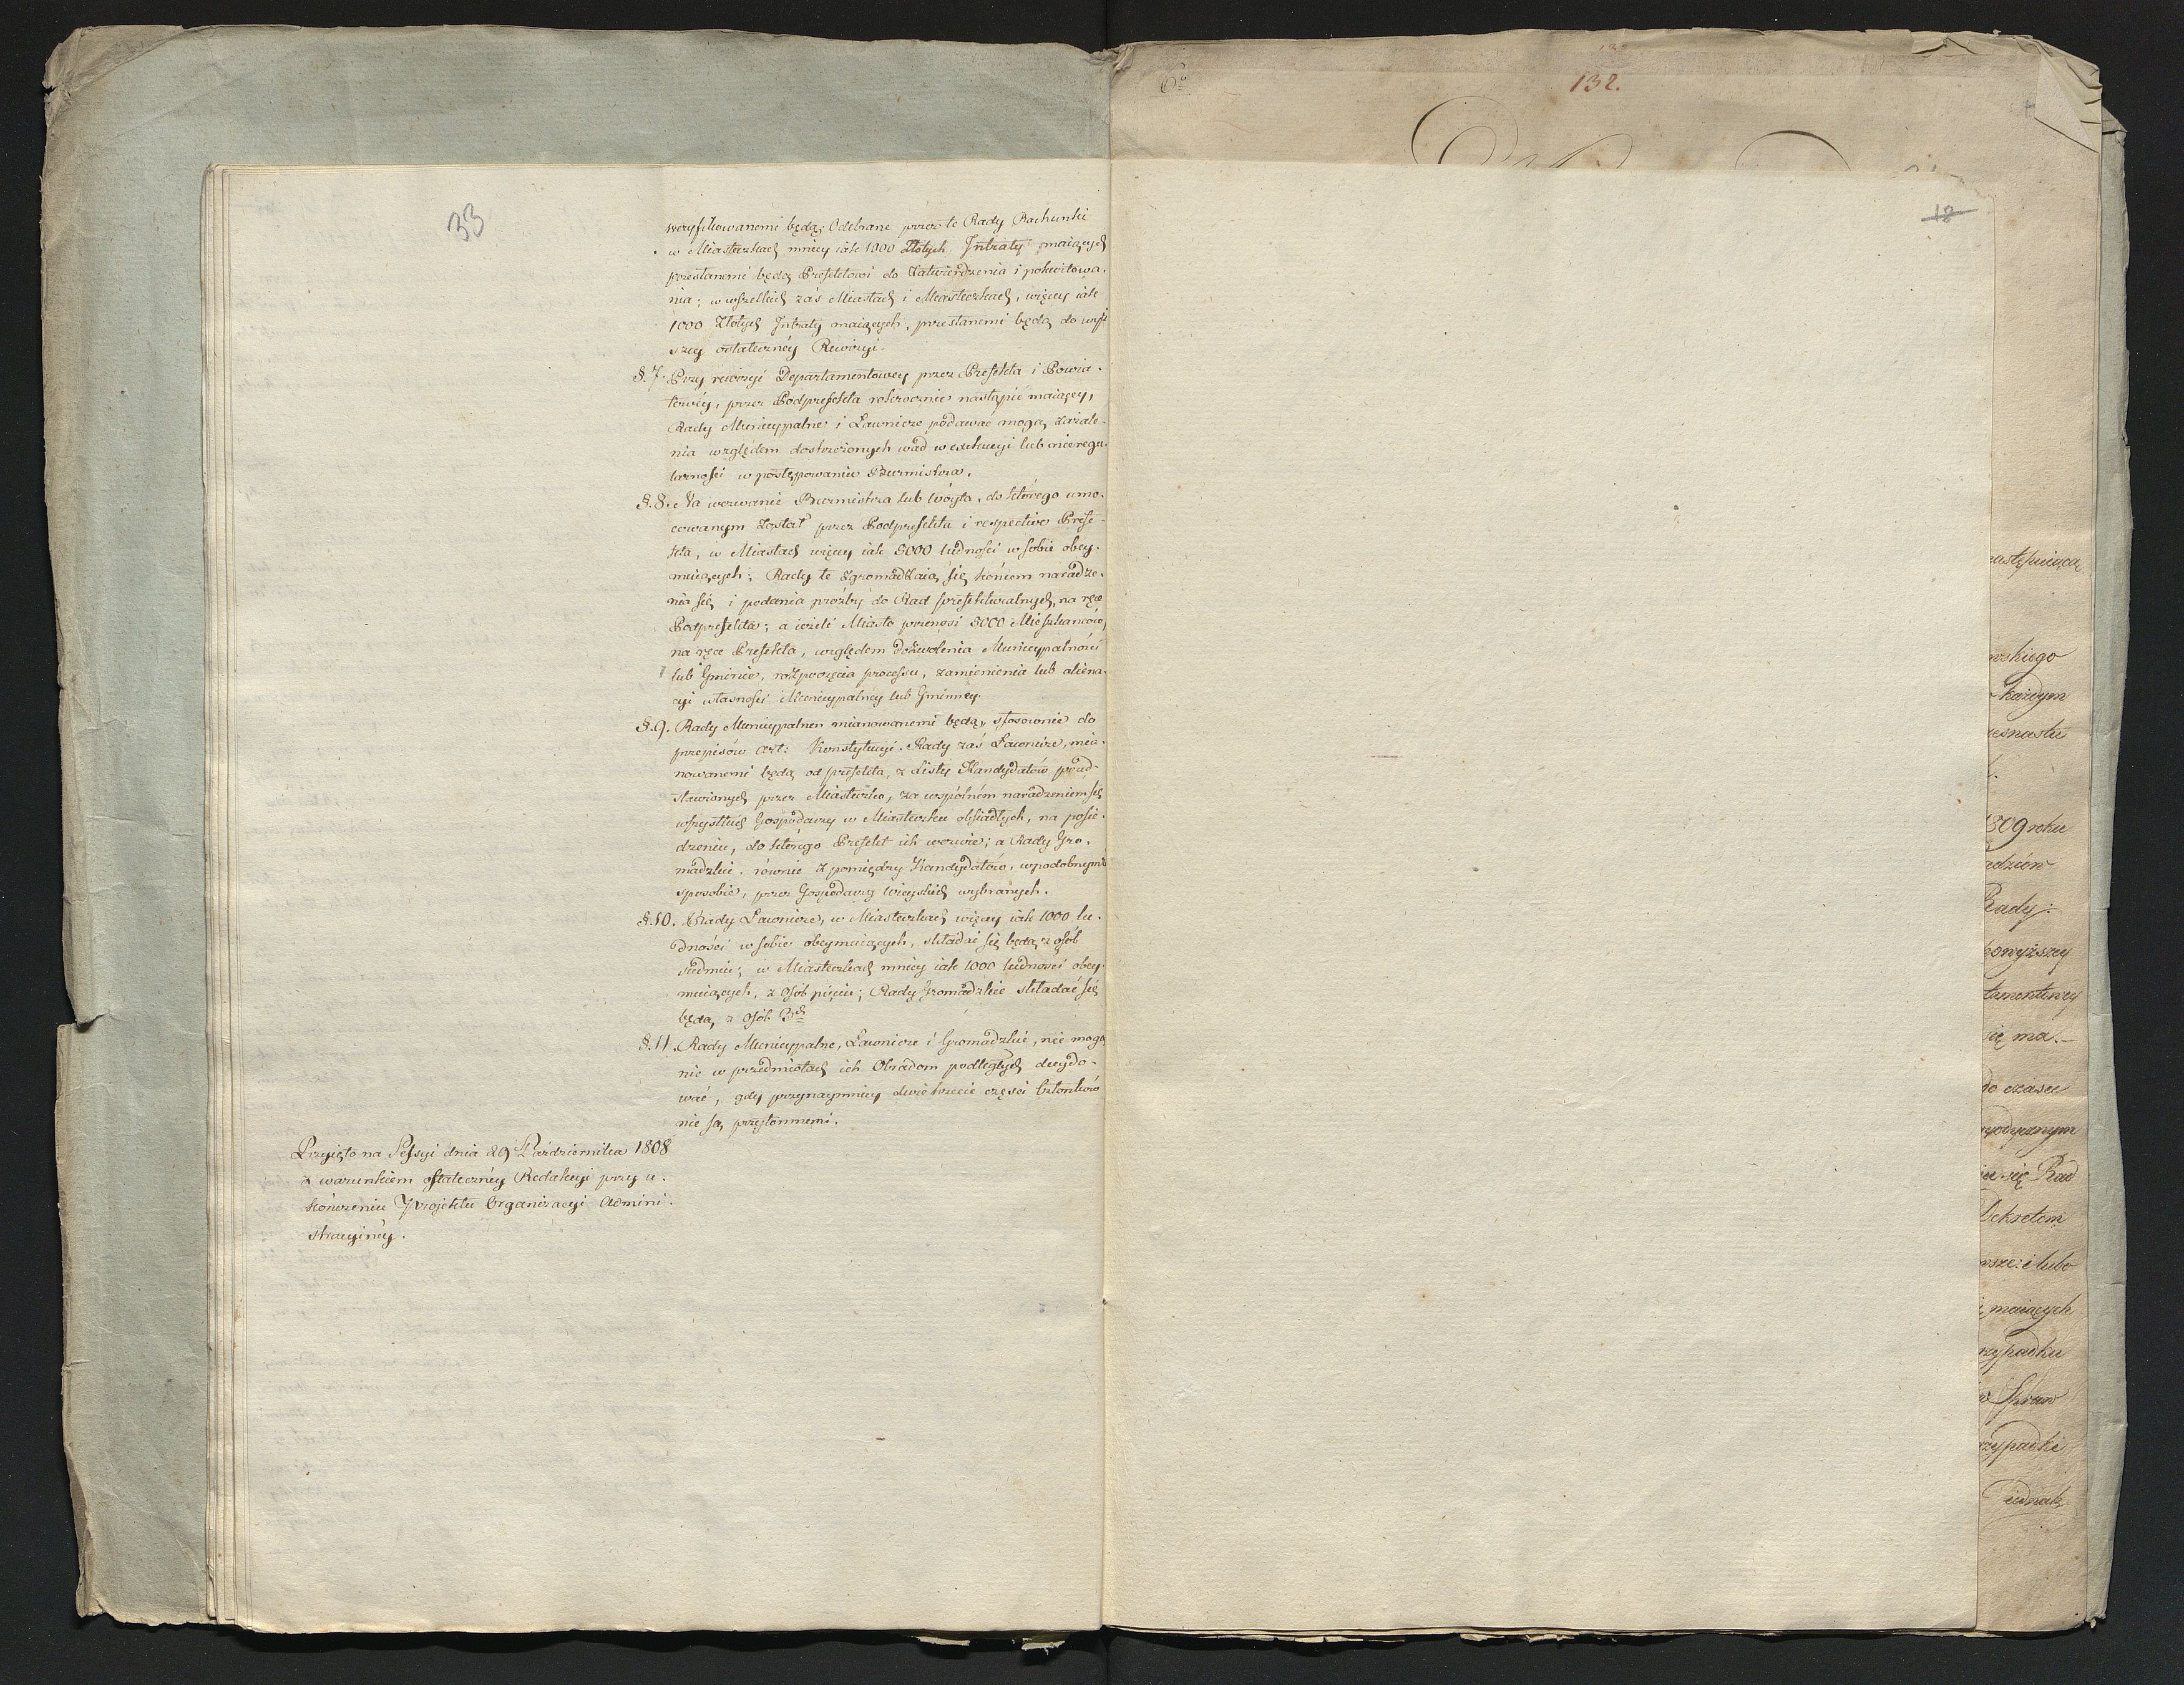 33
weryfikowanemi będą; Odebrane przez te Rady Rachunki
w Miasteczkach mniey iak 1000 Złotych Intraty maiących
przesłanemi będą Prefektowi do Zatwierdzenia i pokwitowa-
nia; w wszelkich zaś Miastach i Miasteczkach, więcey iak
1000 Złotych Intraty maiących, przesłanemi będą do wyż-
szey ostateczney Rewizyi.
§.7. Przy rewizyi Departamentowey przez Prefekta i Powia-
towey, przez Podprefekta rokrocznie nastąpić maiącey,
Rady Municypalne i Ławnicze podawać mogą zażale-
nia względem dostrzeżonych wad w exekucyi lub nieregu-
larności w postępowaniu Burmistrza.
§.8. Na wezwanie Burmistrza lub Wóyta, do którego umo-
cowanym został przez Podprefekta i respective Prefe-
kta, w Miastach więcey iak 5000 ludności w sobie obey-
muiących; Rady te zgromadzaią się końcem naradze-
nia się i podania prośby do Rad prefekturalnych, na ręce
Podprefekta; a ieżeli Miasto przenosi 5000 Mieszkanców,
na ręce Prefekta, względem dozwolenia Municypalności
lub Gminie, rozpoczęcia processu, zamienienia lub aliena-
cyi własności Municypalney lub Gminney.
§.9. Rady Municypalne mianowanemi będą, stosownie do
przepisów art: Konstytucyi. Rady zaś Ławnicze, mia-
nowanemi będą od prefekta, z Listy Kandydatów przed-
stawionych przez Miasteczko, za wspólném naradzeniem się
wszystkich Gospodarzy w Miasteczku osiadłych, na posie-
dzeniu, do którego Prefekt ich wezwie; a Rady Gro-
madzkie, równie z pomiędzy Kandydatów, w podobnym
sposobie, przez Gospodarzy wieyskich wybranych.
§.10. Rady Ławnicze, w Miasteczkach więcey iak 1000 lu-
dności w sobie obeymuiących, składać się będą z osób
siedmiu; w Miasteczkach mniey iak 1000 ludności obey-
muiących, z osób pięciu; Rady Gromadzkie składać się
będą z osób 3ch
§.11. Rady Municypalne, Ławnicze i Gromadzkie, nie mogą
nic w przedmiotach ich Obradom podległych decydo-
wać, gdy przynaymniey dwie trzecie części Członków
nie są przytomnemi.
Przyięto na Sessyi dnia 29 Października 1808
z warunkiem ostateczney Redakcyi przy u-
kończeniu Projektu Organizacyi Admini-
stracyiney.
6o
132.
18
następuiącą
wskiego
każdym
esnastu
1809 roku
Rady:
powyższey
tamentowey
ię ma.
do czasu
ryodycznym
się Rad
Dekretem
wsze: i lubo
maiących
rzypadku
Spraw
rzypadki
iednak